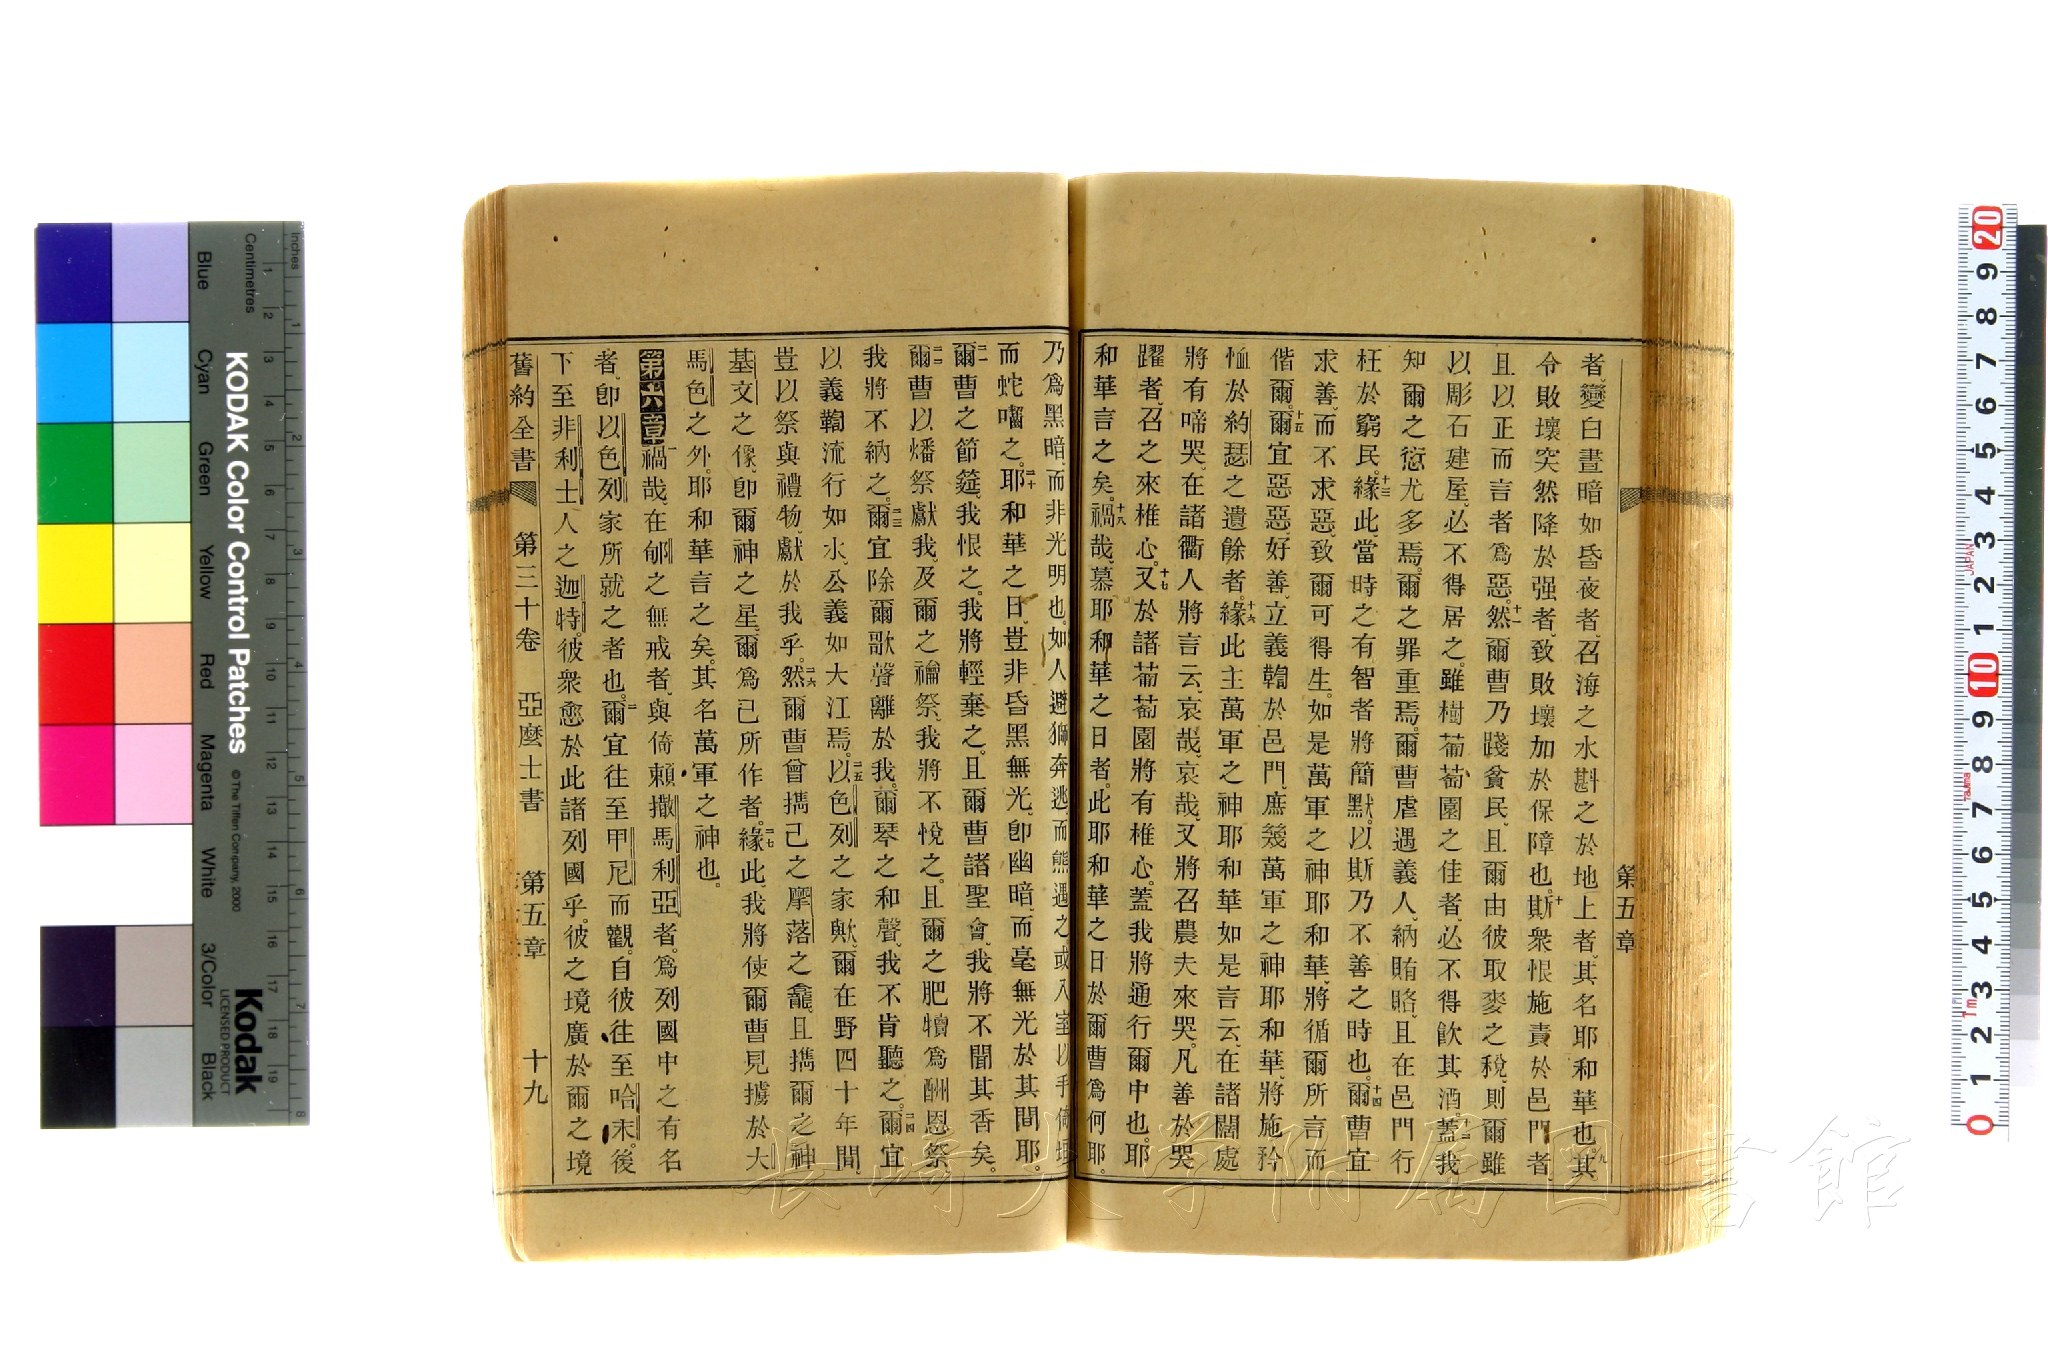 第五章
者、變白晝暗如昏夜者、召海之水斟之於地上者、其名耶和華也。九其
令敗壞突然降於强者、致敗壞加於保障也。十斯衆恨施責於邑門者、
且以正而言者爲惡。十一然爾曹乃踐貧民、且爾由彼取麥之稅、則爾雖
以彫石建屋、必不得居之。雖樹葡萄園之佳者、必不得飲其酒。十二蓋我
知爾之愆尤多焉。爾之罪重焉。爾曹虐遇義人、納賄賂、且在邑門行
枉於窮民。十三緣此、當時之有智者將簡默。以斯乃不善之時也。十四爾曹宜
求善、而不求惡、致爾可得生。如是萬軍之神耶和華、將循爾所言而
偕爾。十五爾宜惡惡、好善、立義於邑門、庶幾萬軍之神耶和華、將施矜
恤於約瑟之遺餘者。十六緣此主萬軍之神耶和華如是言云、在諸闊處
將有啼哭、在諸衢人將言云、哀哉、哀哉、又將召農夫來哭、凡善於哭
躍者、召之來椎心。十七又於諸葡萄園將有椎心。蓋我將通行爾中也。耶
和華言之矣。十八禍哉、慕耶和華之日者。此耶和華之日於爾曹爲何耶。
乃爲黑暗、而非光明也。如人避獅奔逃、而熊遇之。或入室以手倚垣
而蛇囓之。二十耶和華之日、豈非昏黑無光、卽幽暗、而毫無光於其間耶。
二一爾曹之節筵、我恨之。我將輕棄之。且爾曹諸聖會、我將不聞其香矣。
二二爾曹以燔祭獻我、及爾之禴祭、我將不悅之。且爾之肥犢爲酬恩祭
我將不納之。二三爾宜除爾歌聲離於我。爾琴之和聲、我不肯聽之。二四爾宜
以義鞫流行如水、公義如大江焉。二五以色列之家歟、爾在野四十年間、
豈以祭與禮物、獻於我乎。二六然爾曹曾攜己之摩落之龕、且攜爾之神
基文之像、卽爾神之星、爾爲己所作者。二七緣此、我將使爾曹見擄於大
馬色之外。耶和華言之矣。其名萬軍之神也。
第六章 一禍哉、在郇之無戒者、與倚賴撒馬利亞者。爲列國中之有名
者、卽以色列家所就之者也。二爾宜往至甲尼而觀。自彼往至哈末。後
下至非利士人之迦特。彼衆愈於此諸列國乎。彼之境廣於爾之境
舊約全書 第三十卷 亞麼士書 第五章 十九
長崎大学附属図書館
KODAK Color Control Patches
© The Tiffen Company, 2000
Kodak
LICENSED PRODUCT
Inches
Centimetres
Blue
Cyan
Green
Yellow
Red
Magenta
White
3/Color
Black
JAPAN
1m